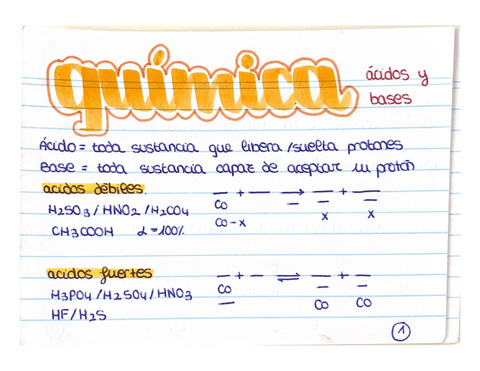 química
ácidos y
bases
Ácido = toda sustancia que libera/suelta protones
Base = toda sustancia capaz de aceptar un protón
acidos débiles.
— + — → — + —
H2SO3 / HNO2 / H2CO4
CO — —
CH3COOH α = 100%
CO-x x x
acidos fuertes
— + — ⇌ — + —
H3PO4 / H2SO4 / HNO3
CO — —
HF / H2S
— CO CO
1